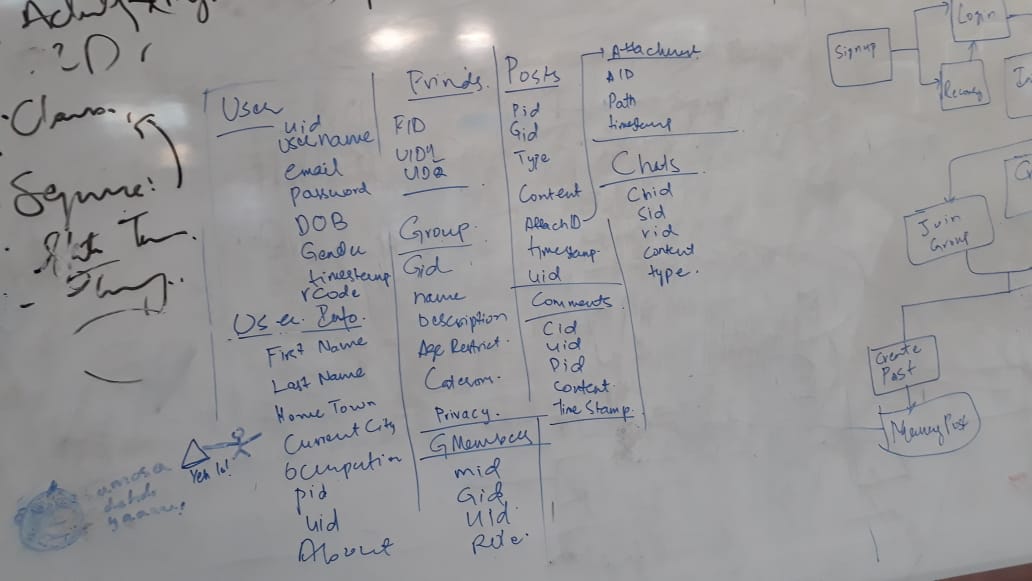 User
uid
username
email
Password
DOB
timestamp
rcode
User Info.
First Name
Last Name
Home Town
Current City
Occupation
pid
uid
About
Frinds.
FID
UID1
UID2
Group.
Gid
name
Description
Age Restrict.
Privacy.
GMembers
mid
Gid
Uid
Role.
Posts
Pid
Gid
Type
Content
AttachID
timestamp.
uid
Comments
Cid
uid
Pid
Content.
Time Stamp.
Attachment
AID
Path
timestamp
Chats
Chid
Sid
rid
Content
type.
Signup
Login
Recovery
Join
Group
Create
Post
Yeh lo!